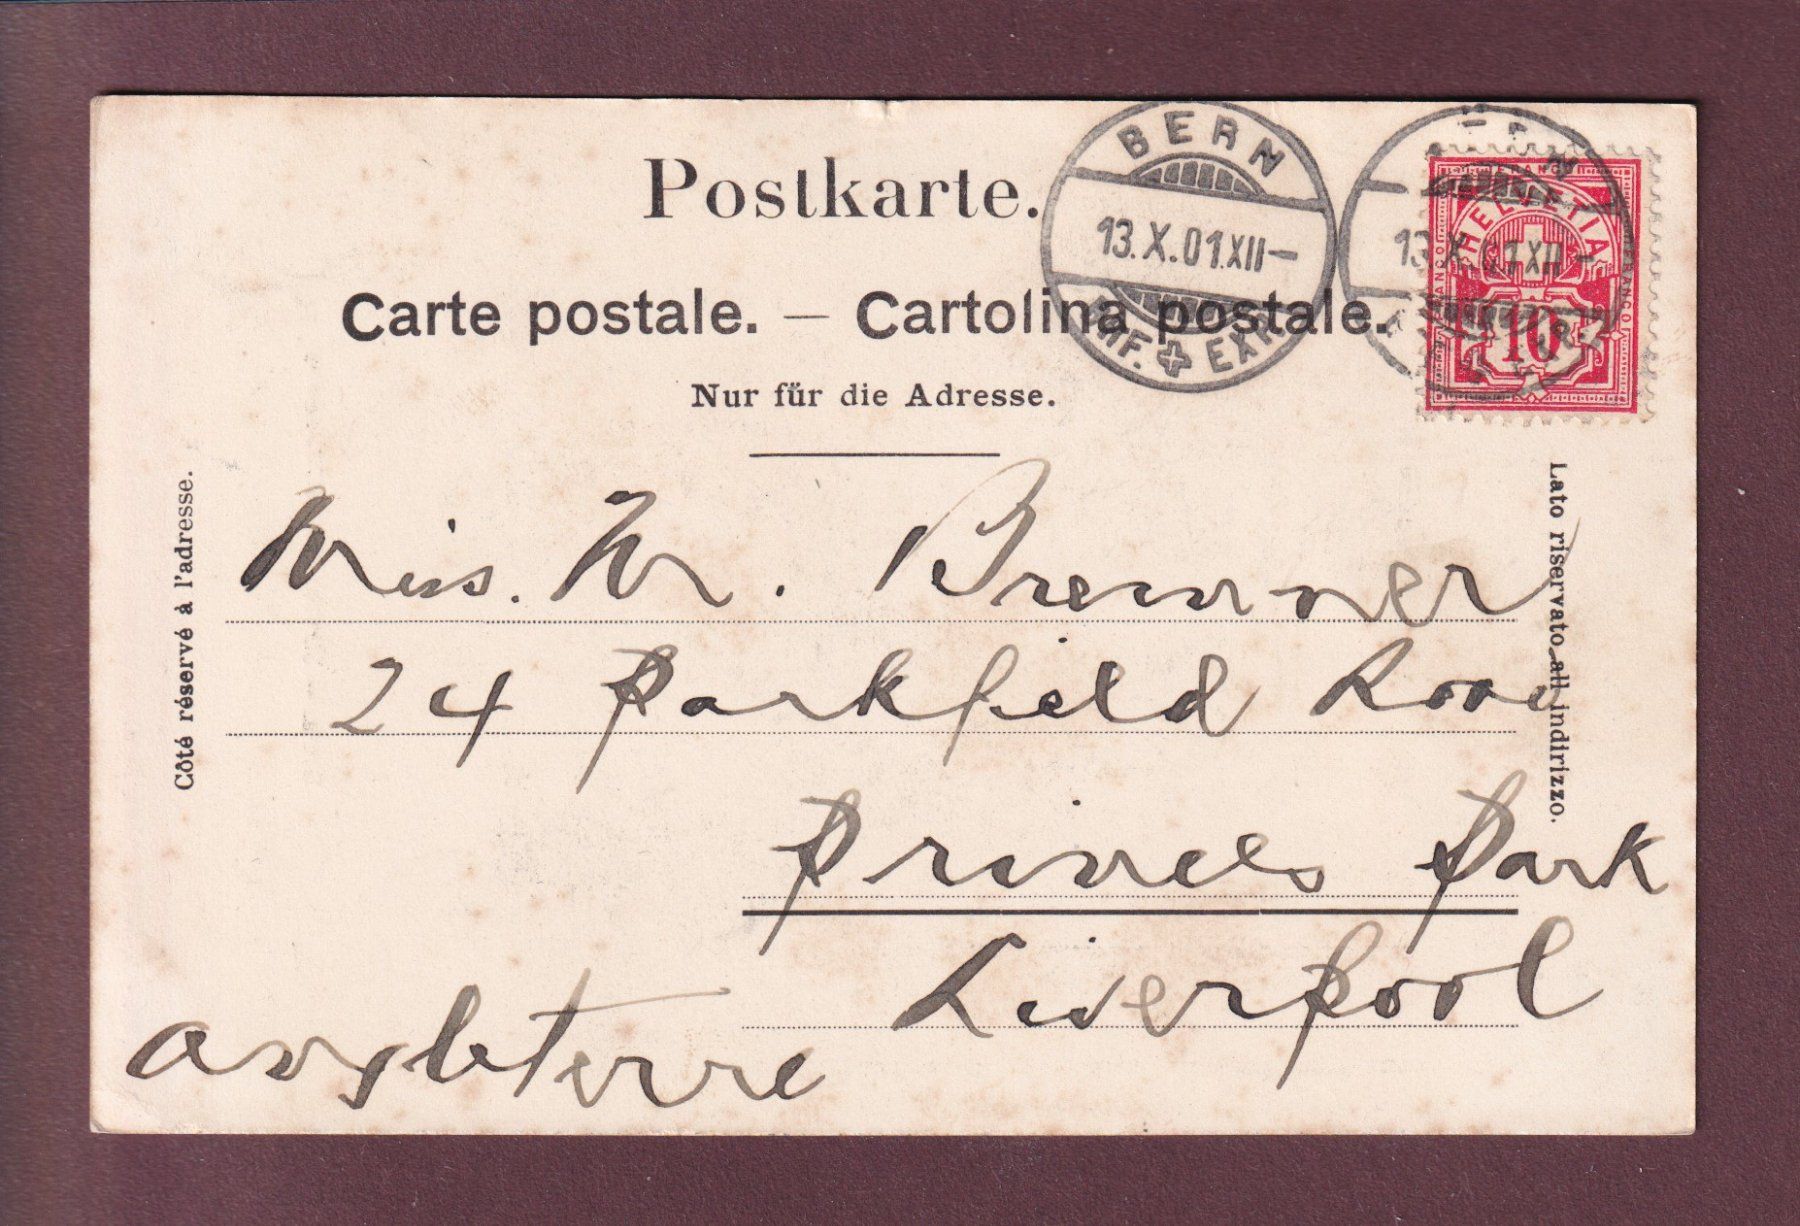 Postkarte.
BERN
13.X.01.XII–
EXP
Carte postale. — Cartolina postale.
Nur für die Adresse.
FRANCO
HELVETIA
FRANCO
FRANCO
10
13.X.01XII–
Côté réservé à l'adresse.
Lato riservato all indirizzo.
Miss. M. Bremner
24 Parkfield Road
Princes Park
Liverpool
Angleterre